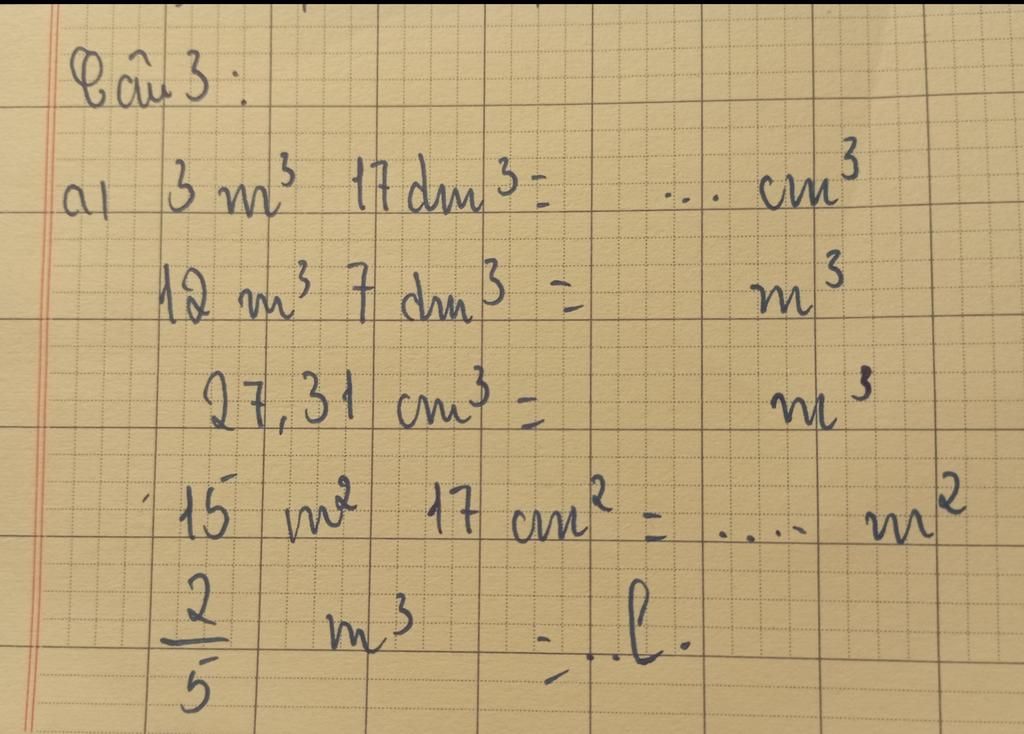 Câu 3:
a) 3 m³ 17 dm³ = ... cm³
12 m³ 7 dm³ = m³
27,31 cm³ = m³
15 m² 17 cm² = .... m²
2/5 m³ = ..l.